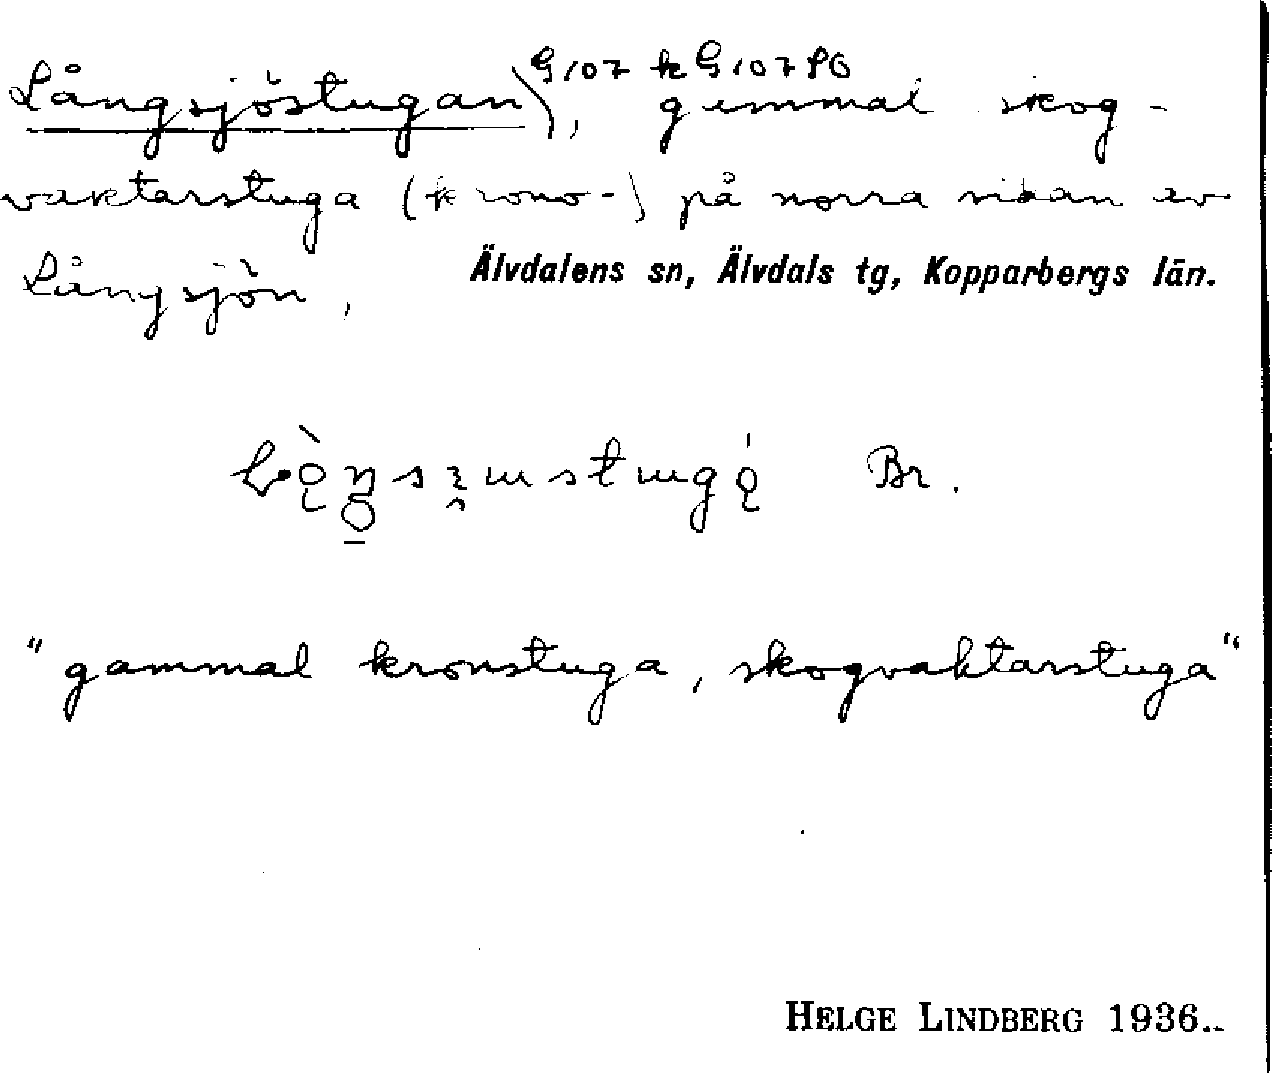 Långsjöstugan), G107 k G107 PO gammal skog-
vaktarstuga (krono-) på norra sidan av
Långsjön, Älvdalens sn, Älvdals tg, Kopparbergs län.
Br.
"gammal kronstuga, skogvaktarstuga"
HELGE LINDBERG 1936.